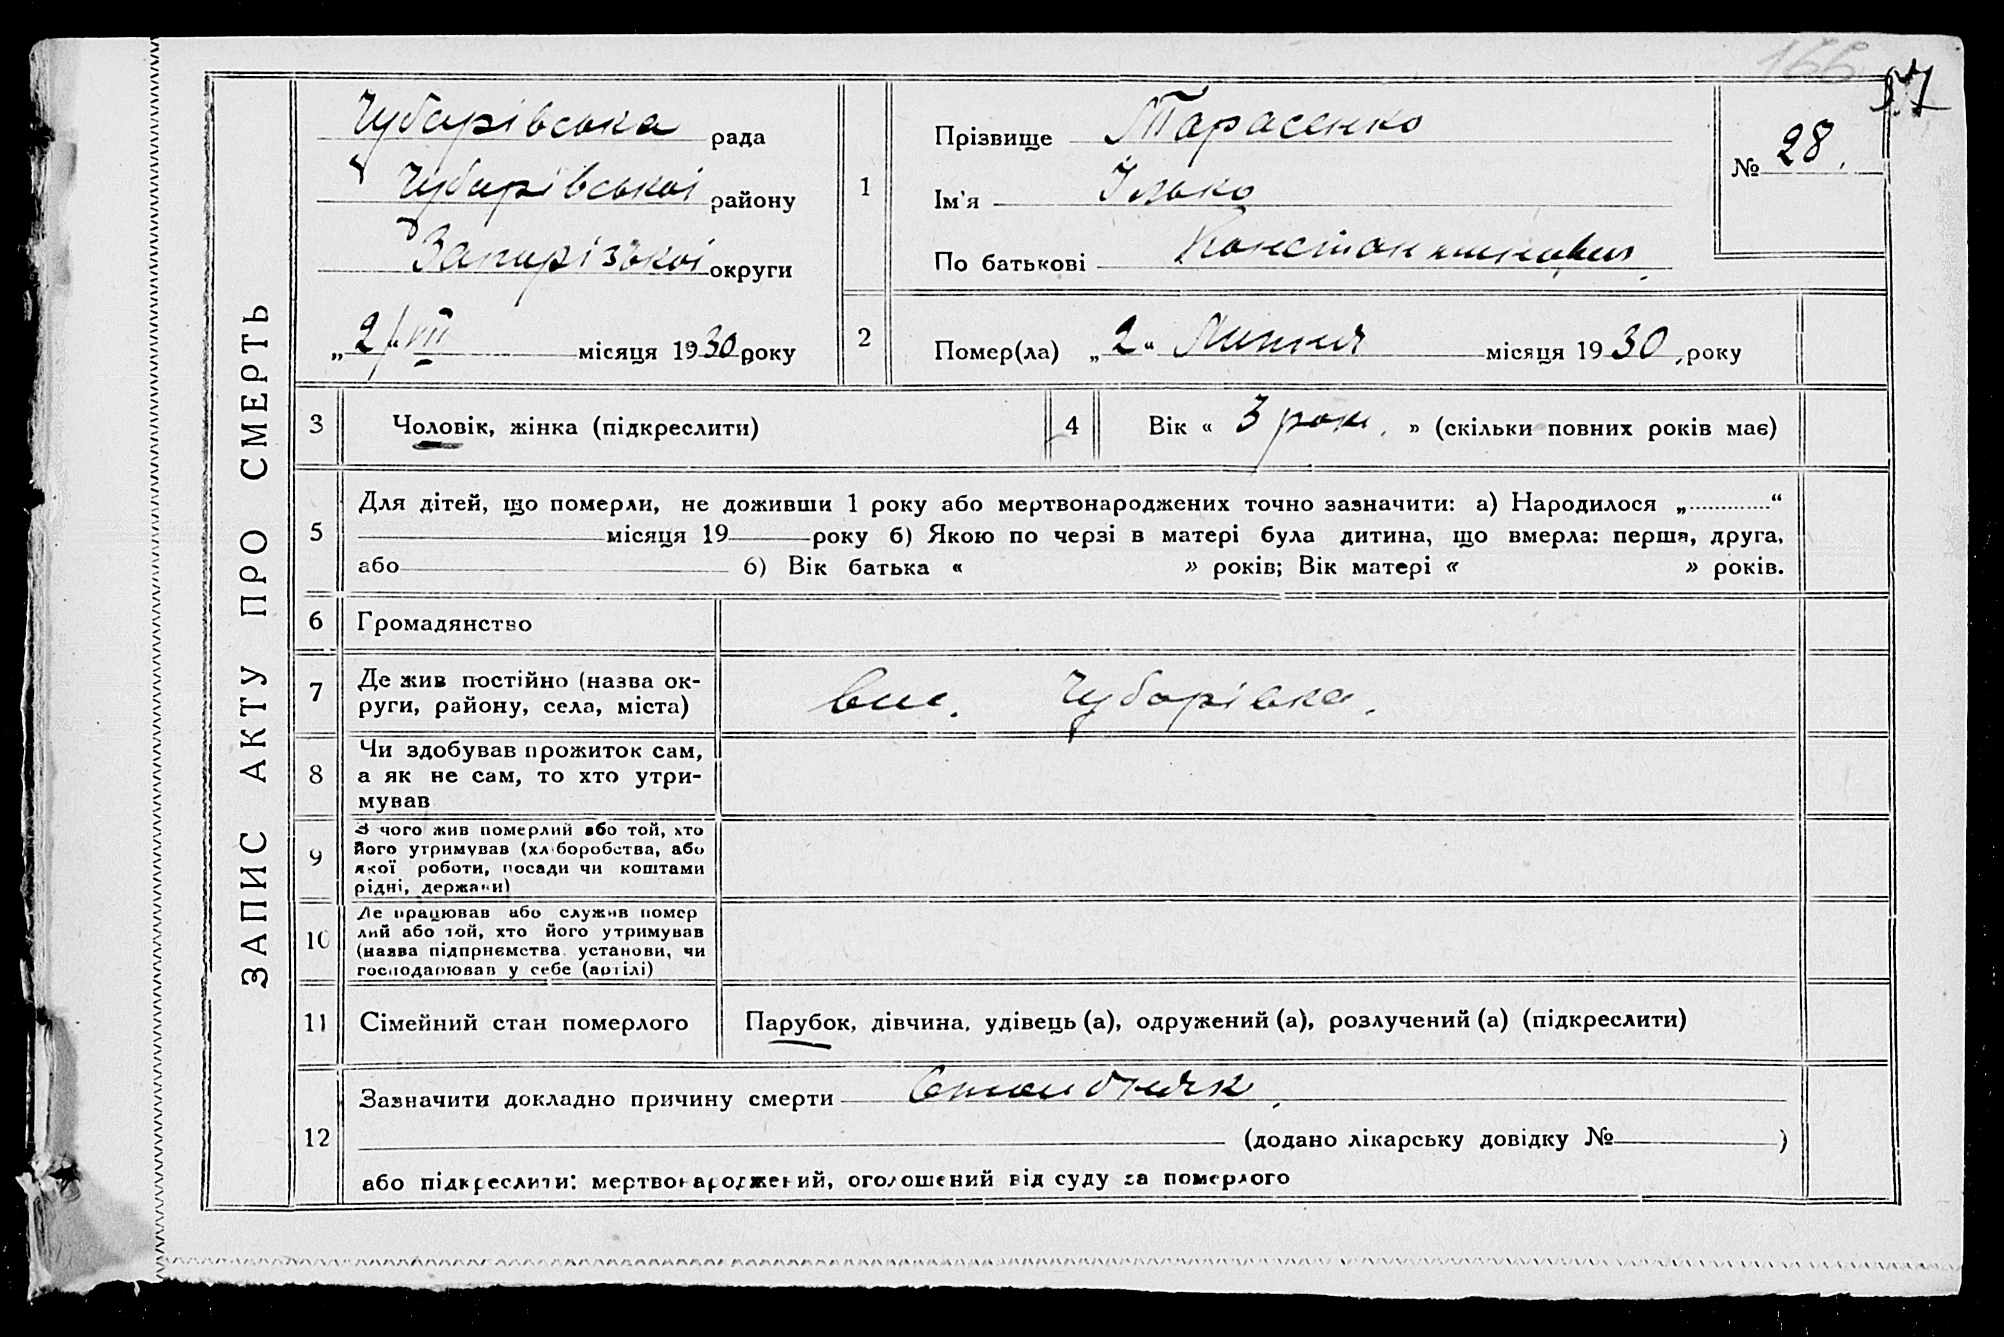 166
57
ЗАПИС АКТУ ПРО СМЕРТЬ
Чубарівська рада
Чубарівської району
Запорізької округи
„ 2/VII місяця 1930 року
1
Прізвище Тарасенко
Ім'я Ілько
По батькові Константинович
№ 28.
2
Помер(ла) „ 2 “ Липня місяця 1930 року
3 Чоловік, жінка (підкреслити)
4 Вік « 3 роки. » (скільки повних років має)
5
Для дітей, що померли, не доживши 1 року або мертвонароджених точно зазначити: а) Народилося „..............“
місяця 19 року б) Якою по черзі в матері була дитина, що вмерла: перша, друга,
або б) Вік батька « » років; Вік матері « » років.
6 Громадянство
7
Де жив постійно (назва ок-
руги, району, села, міста)
вис. Чубарівка.
8
Чи здобував прожиток сам,
а як не сам, то хто утри-
мував
9
З чого жив померлий або той, хто
його утримував (хліборобства, або
якої роботи, посади чи коштами
рідні, держави)
10
Де працював або служив помер
лий або той, хто його утримував
(назва підприємства установи, чи
господарював у себе (артілі)
11 Сімейний стан померлого
Парубок, дівчина, удівець (а), одружений (а), розлучений (а) (підкреслити)
12
Зазначити докладно причину смерти
(додано лікарську довідку № )
або підкреслити: мертвонароджений, оголошений від суду за померлого